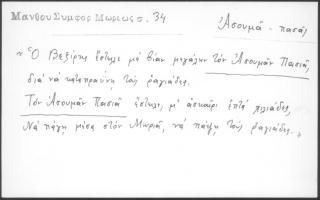 Μανθου Συμφορ Μωριως σ. 34
Ἀσουμᾶ - πασᾶς
« Ὁ Βεζίρης ἔστειλε μὲ βίαν μεγάλην τὸν Ἀσουμὰν Πασιᾶ,
διὰ νὰ καταπραΰνῃ τοὺς ραγιάδες.
Τὸν Ἀσουμὰν Πασιᾶ ἔστειλε, μ' ἀσκαίρι ἑπτὰ χιλιάδες,
Νὰ πάγῃ μέσα στὸν Μωριᾶ, νὰ πάψῃ τοὺς ραγιάδες. »